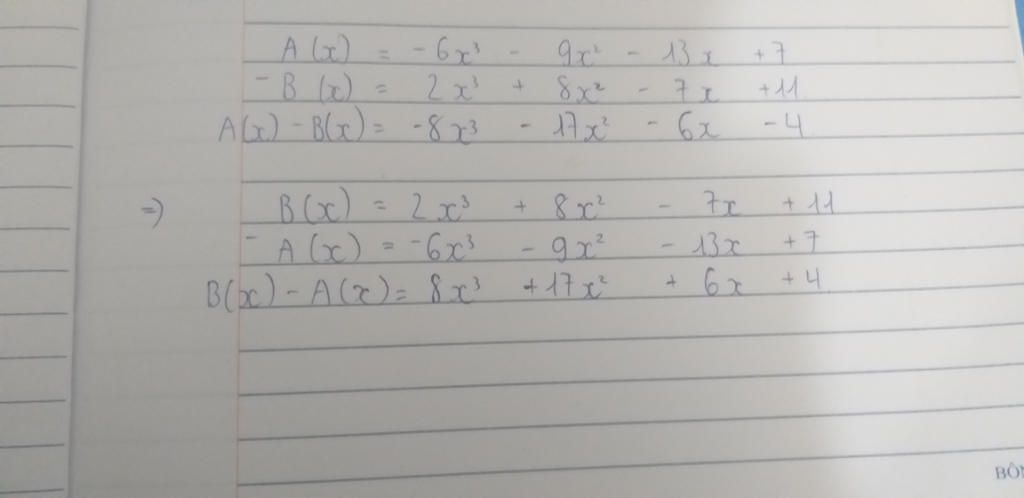 A(x) = -6x³ - 9x² - 13x + 7
- B(x) = 2x³ + 8x² - 7x + 11
A(x) - B(x) = -8x³ - 17x² - 6x - 4
=> B(x) = 2x³ + 8x² - 7x + 11
- A(x) = -6x³ - 9x² - 13x + 7
B(x) - A(x) = 8x³ + 17x² + 6x + 4